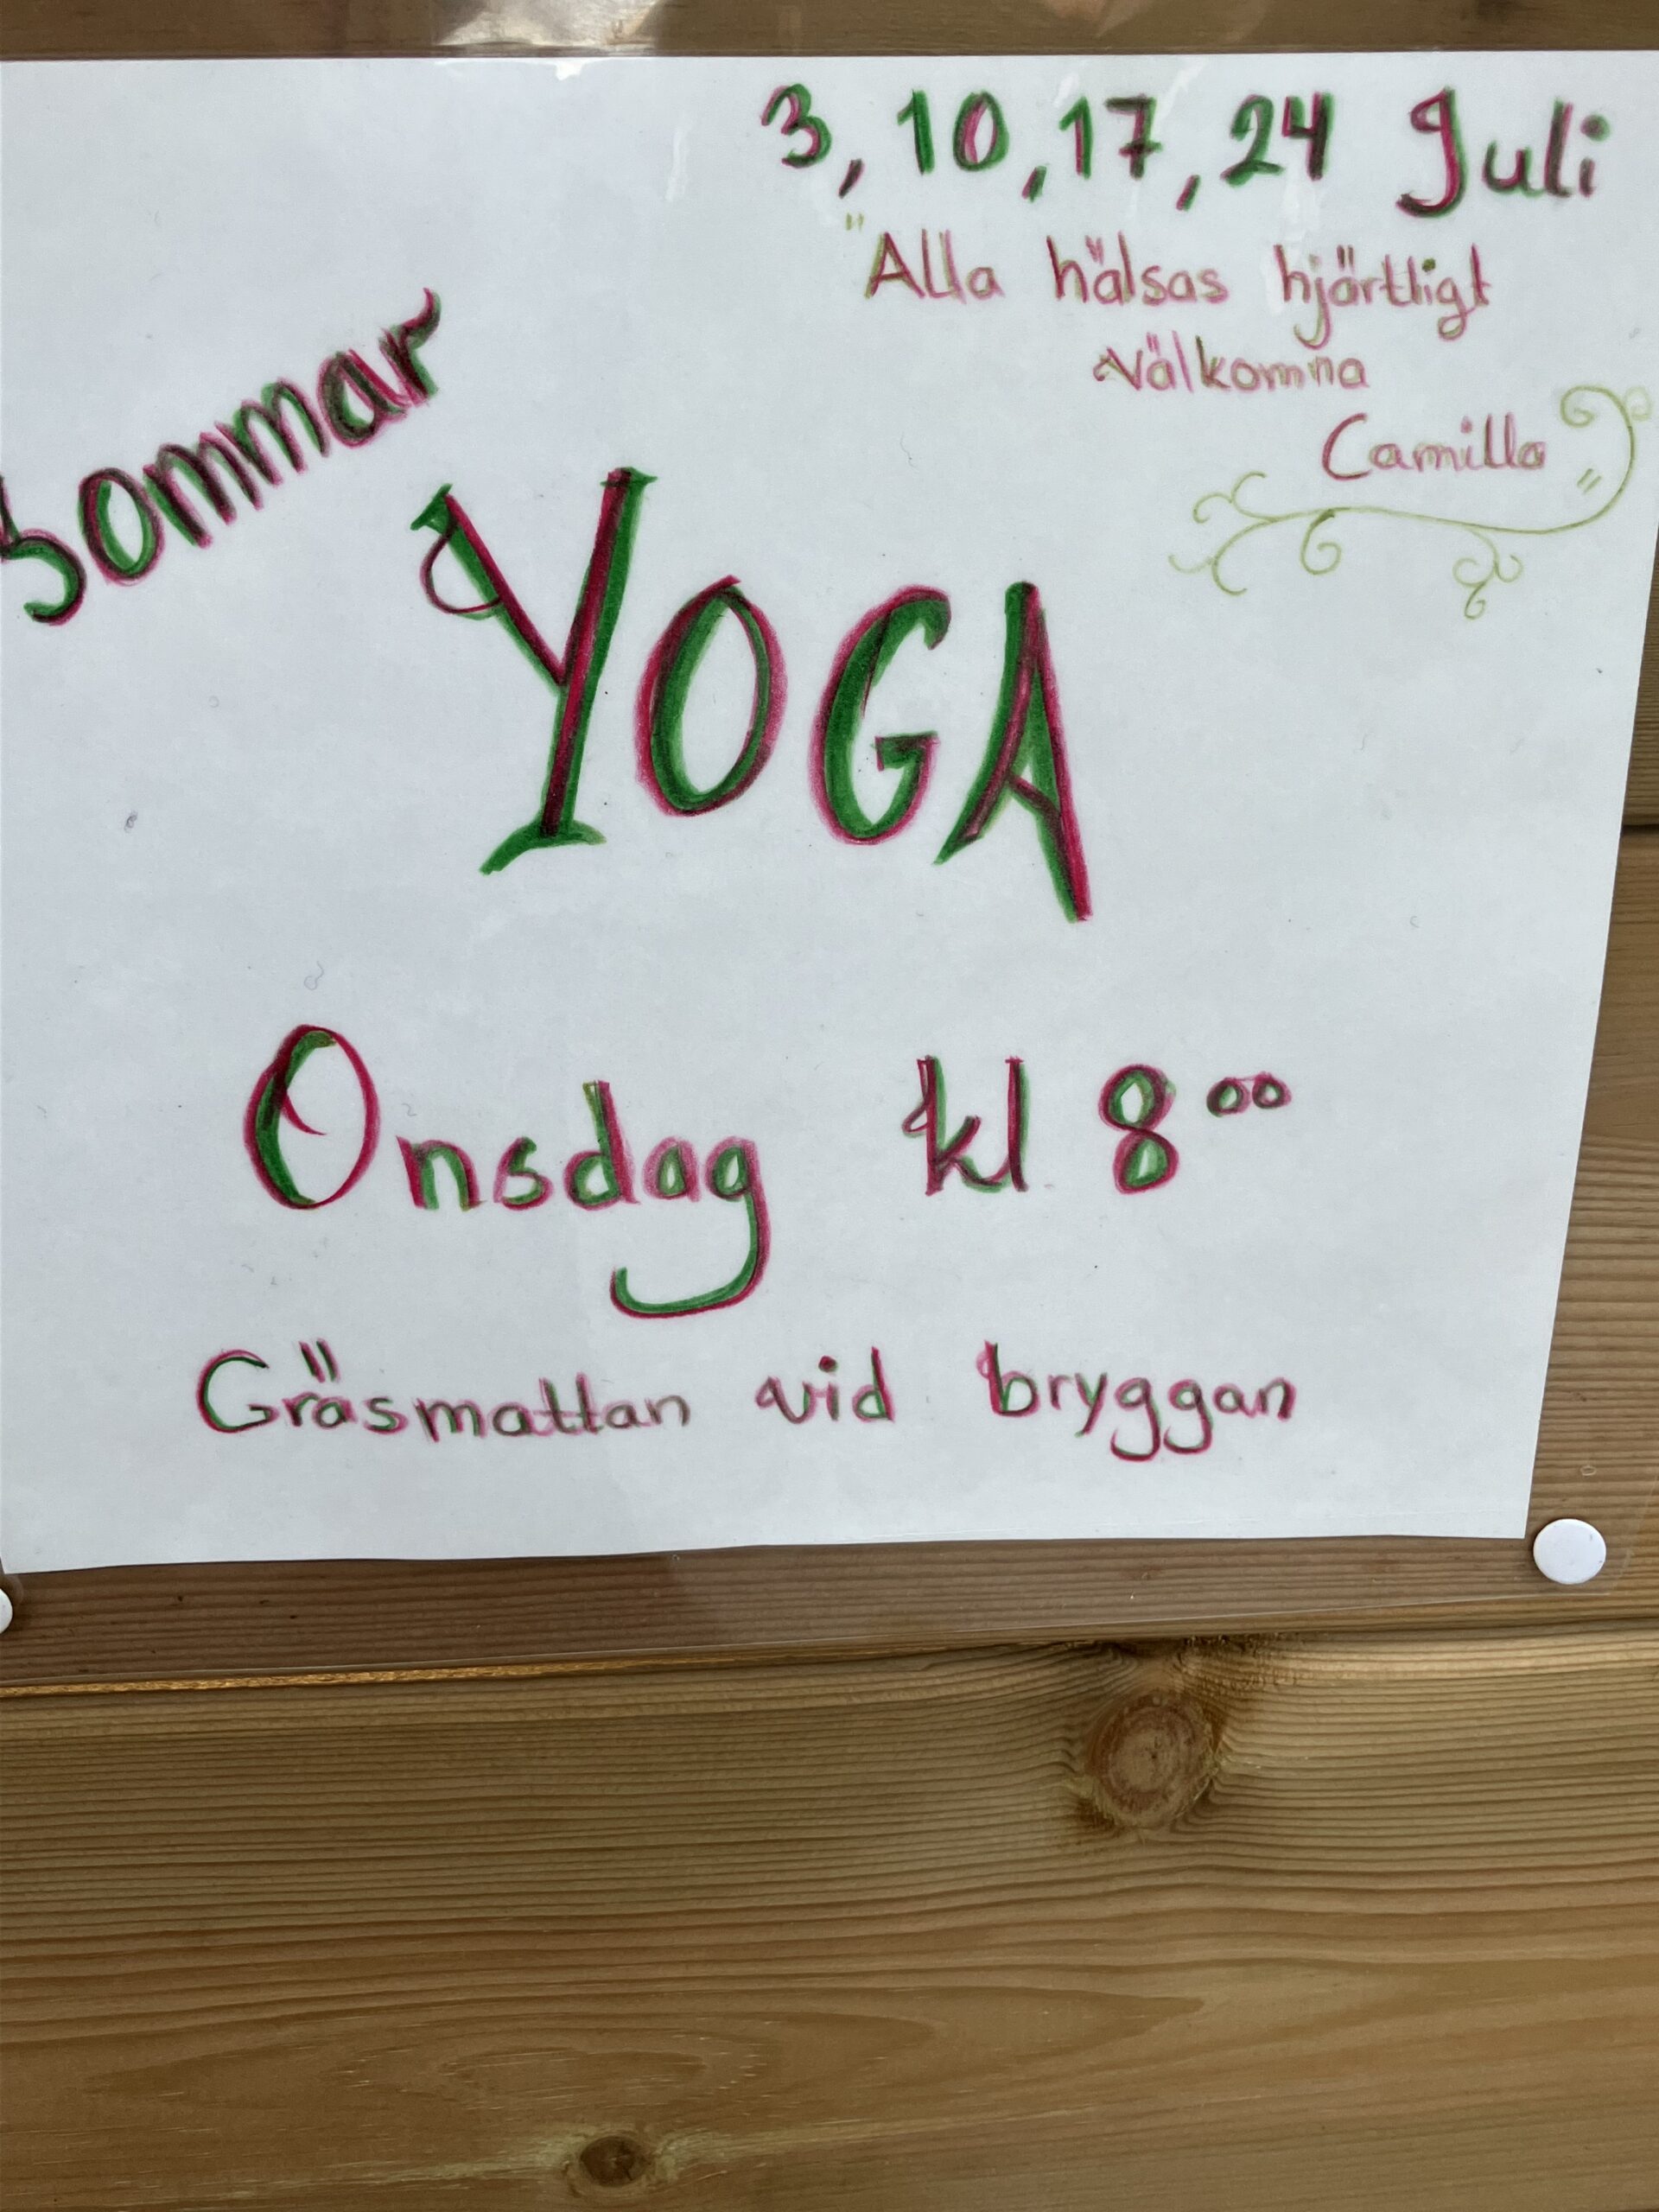 3, 10, 17, 24 Juli
"Alla hälsas hjärtligt
välkomna
Camilla"
Sommar
YOGA
Onsdag kl 8⁰⁰
Gräsmattan vid bryggan